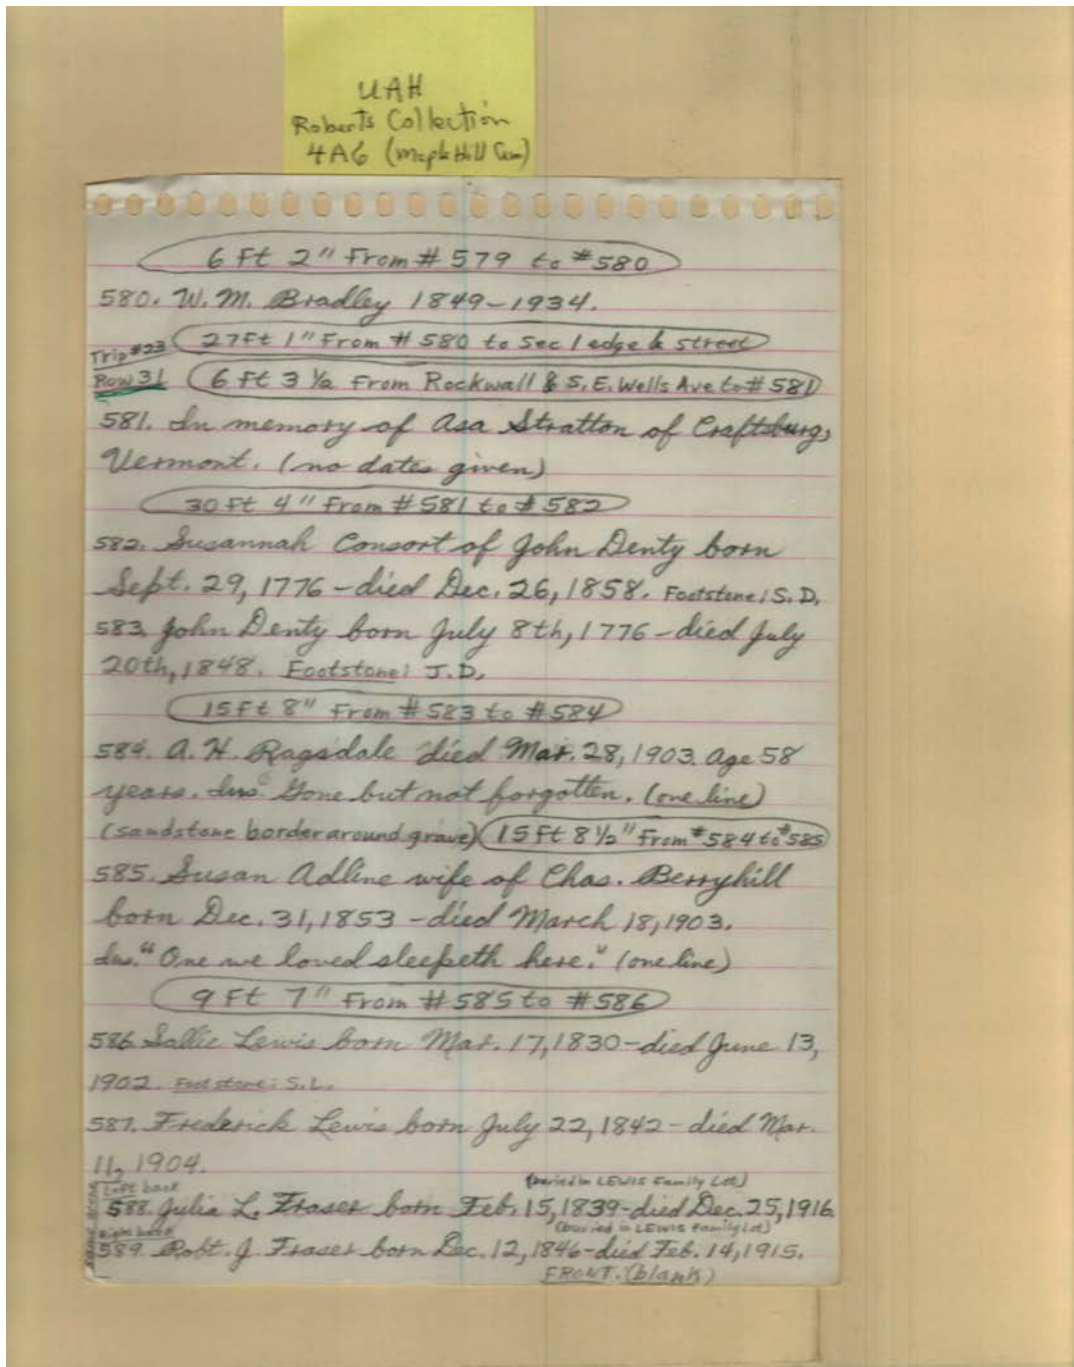 UAH
Roberts Collection
4A6 (Maple Hill Cem)
6 Ft 2" From # 579 to #580
580. W. M. Bradley 1849-1934.
27Ft 1" From # 580 to Sec 1 edge & street
Trip #23
Row 31 6 Ft 3 1/2 From Rockwall & S. E. Wells Ave to # 581
581. In memory of Asa Stratton of Craftsburg,
Vermont. (no dates given)
30 Ft 4" From # 581 to # 582
582. Susannah Consort of John Denty born
Sept. 29, 1776 - died Dec. 26, 1858. Footstone: S. D.
583. John Denty born July 8th, 1776 - died July
20th, 1848. Footstone: J. D.
15 Ft 8" From # 583 to # 584
584. A. H. Ragsdale died Mar. 28, 1903. Age 58
years. Ins. Gone but not forgotten. (one line)
(sandstone border around grave) 15 Ft 8 1/2" From #584 to #585
585. Susan Adline wife of Chas. Berryhill
born Dec. 31, 1853 - died March 18, 1903.
Ins. "One we loved sleepeth here." (one line)
9 Ft 7" From # 585 to # 586
586. Sallie Lewis born Mar. 17, 1830 - died June 13,
1902. Footstone: S. L.
587. Frederick Lewis born July 22, 1842 - died Mar.
11, 1904.
Left back (buried in LEWIS Family Lot)
588. Julia L. Fraser born Feb. 15, 1839 - died Dec. 25, 1916.
Right back (buried in LEWIS Family Lot)
589. Robt. J. Fraser born Dec. 12, 1846 - died Feb. 14, 1915.
FRONT. (blank)